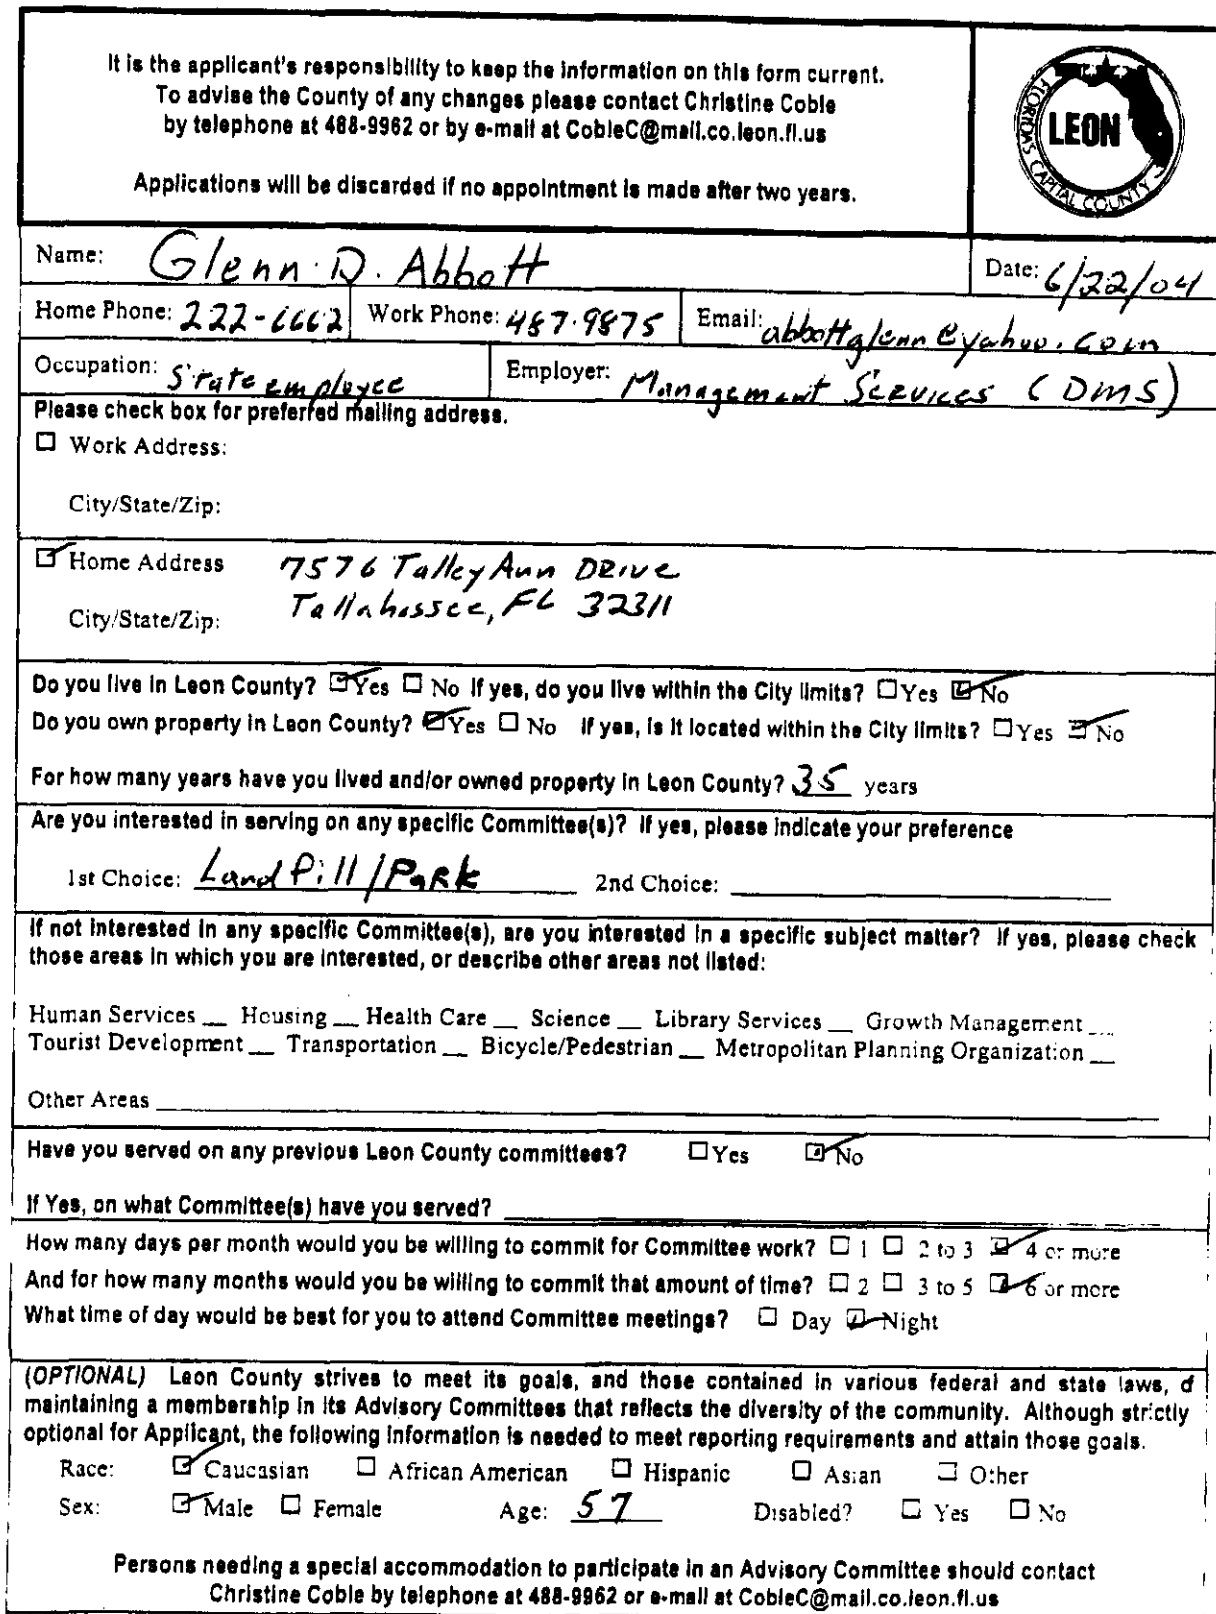 It is the applicant's responsibility to keep the information on this form current.
To advise the County of any changes please contact Christine Coble
by telephone at 488-9962 or by e-mail at CobleC@mail.co.leon.fl.us
Applications will be discarded if no appointment is made after two years.
LEON
FLORIDA'S CAPITAL COUNTY
Name: Glenn D. Abbott
Date: 6/22/04
Home Phone: 222-6662 Work Phone: 487-9875 Email: abbottglenn@yahoo.com
Occupation: State employee Employer: Management Services (DMS)
Please check box for preferred mailing address.
☐ Work Address:
City/State/Zip:
☑ Home Address 7576 Talley Ann Drive
City/State/Zip: Tallahassee, FL 32311
Do you live in Leon County? ☑ Yes ☐ No If yes, do you live within the City limits? ☐ Yes ☑ No
Do you own property in Leon County? ☑ Yes ☐ No If yes, is it located within the City limits? ☐ Yes ☑ No
For how many years have you lived and/or owned property in Leon County? 35 years
Are you interested in serving on any specific Committee(s)? If yes, please indicate your preference
1st Choice: Landfill/Park 2nd Choice:
If not interested in any specific Committee(s), are you interested in a specific subject matter? If yes, please check
those areas in which you are interested, or describe other areas not listed:
Human Services __ Housing __ Health Care __ Science __ Library Services __ Growth Management __
Tourist Development __ Transportation __ Bicycle/Pedestrian __ Metropolitan Planning Organization __
Other Areas
Have you served on any previous Leon County committees? ☐ Yes ☑ No
If Yes, on what Committee(s) have you served?
How many days per month would you be willing to commit for Committee work? ☐ 1 ☐ 2 to 3 ☑ 4 or more
And for how many months would you be willing to commit that amount of time? ☐ 2 ☐ 3 to 5 ☑ 6 or more
What time of day would be best for you to attend Committee meetings? ☐ Day ☑ Night
(OPTIONAL) Leon County strives to meet its goals, and those contained in various federal and state laws, of
maintaining a membership in its Advisory Committees that reflects the diversity of the community. Although strictly
optional for Applicant, the following information is needed to meet reporting requirements and attain those goals.
Race: ☑ Caucasian ☐ African American ☐ Hispanic ☐ Asian ☐ Other
Sex: ☑ Male ☐ Female Age: 57 Disabled? ☐ Yes ☐ No
Persons needing a special accommodation to participate in an Advisory Committee should contact
Christine Coble by telephone at 488-9962 or e-mail at CobleC@mail.co.leon.fl.us